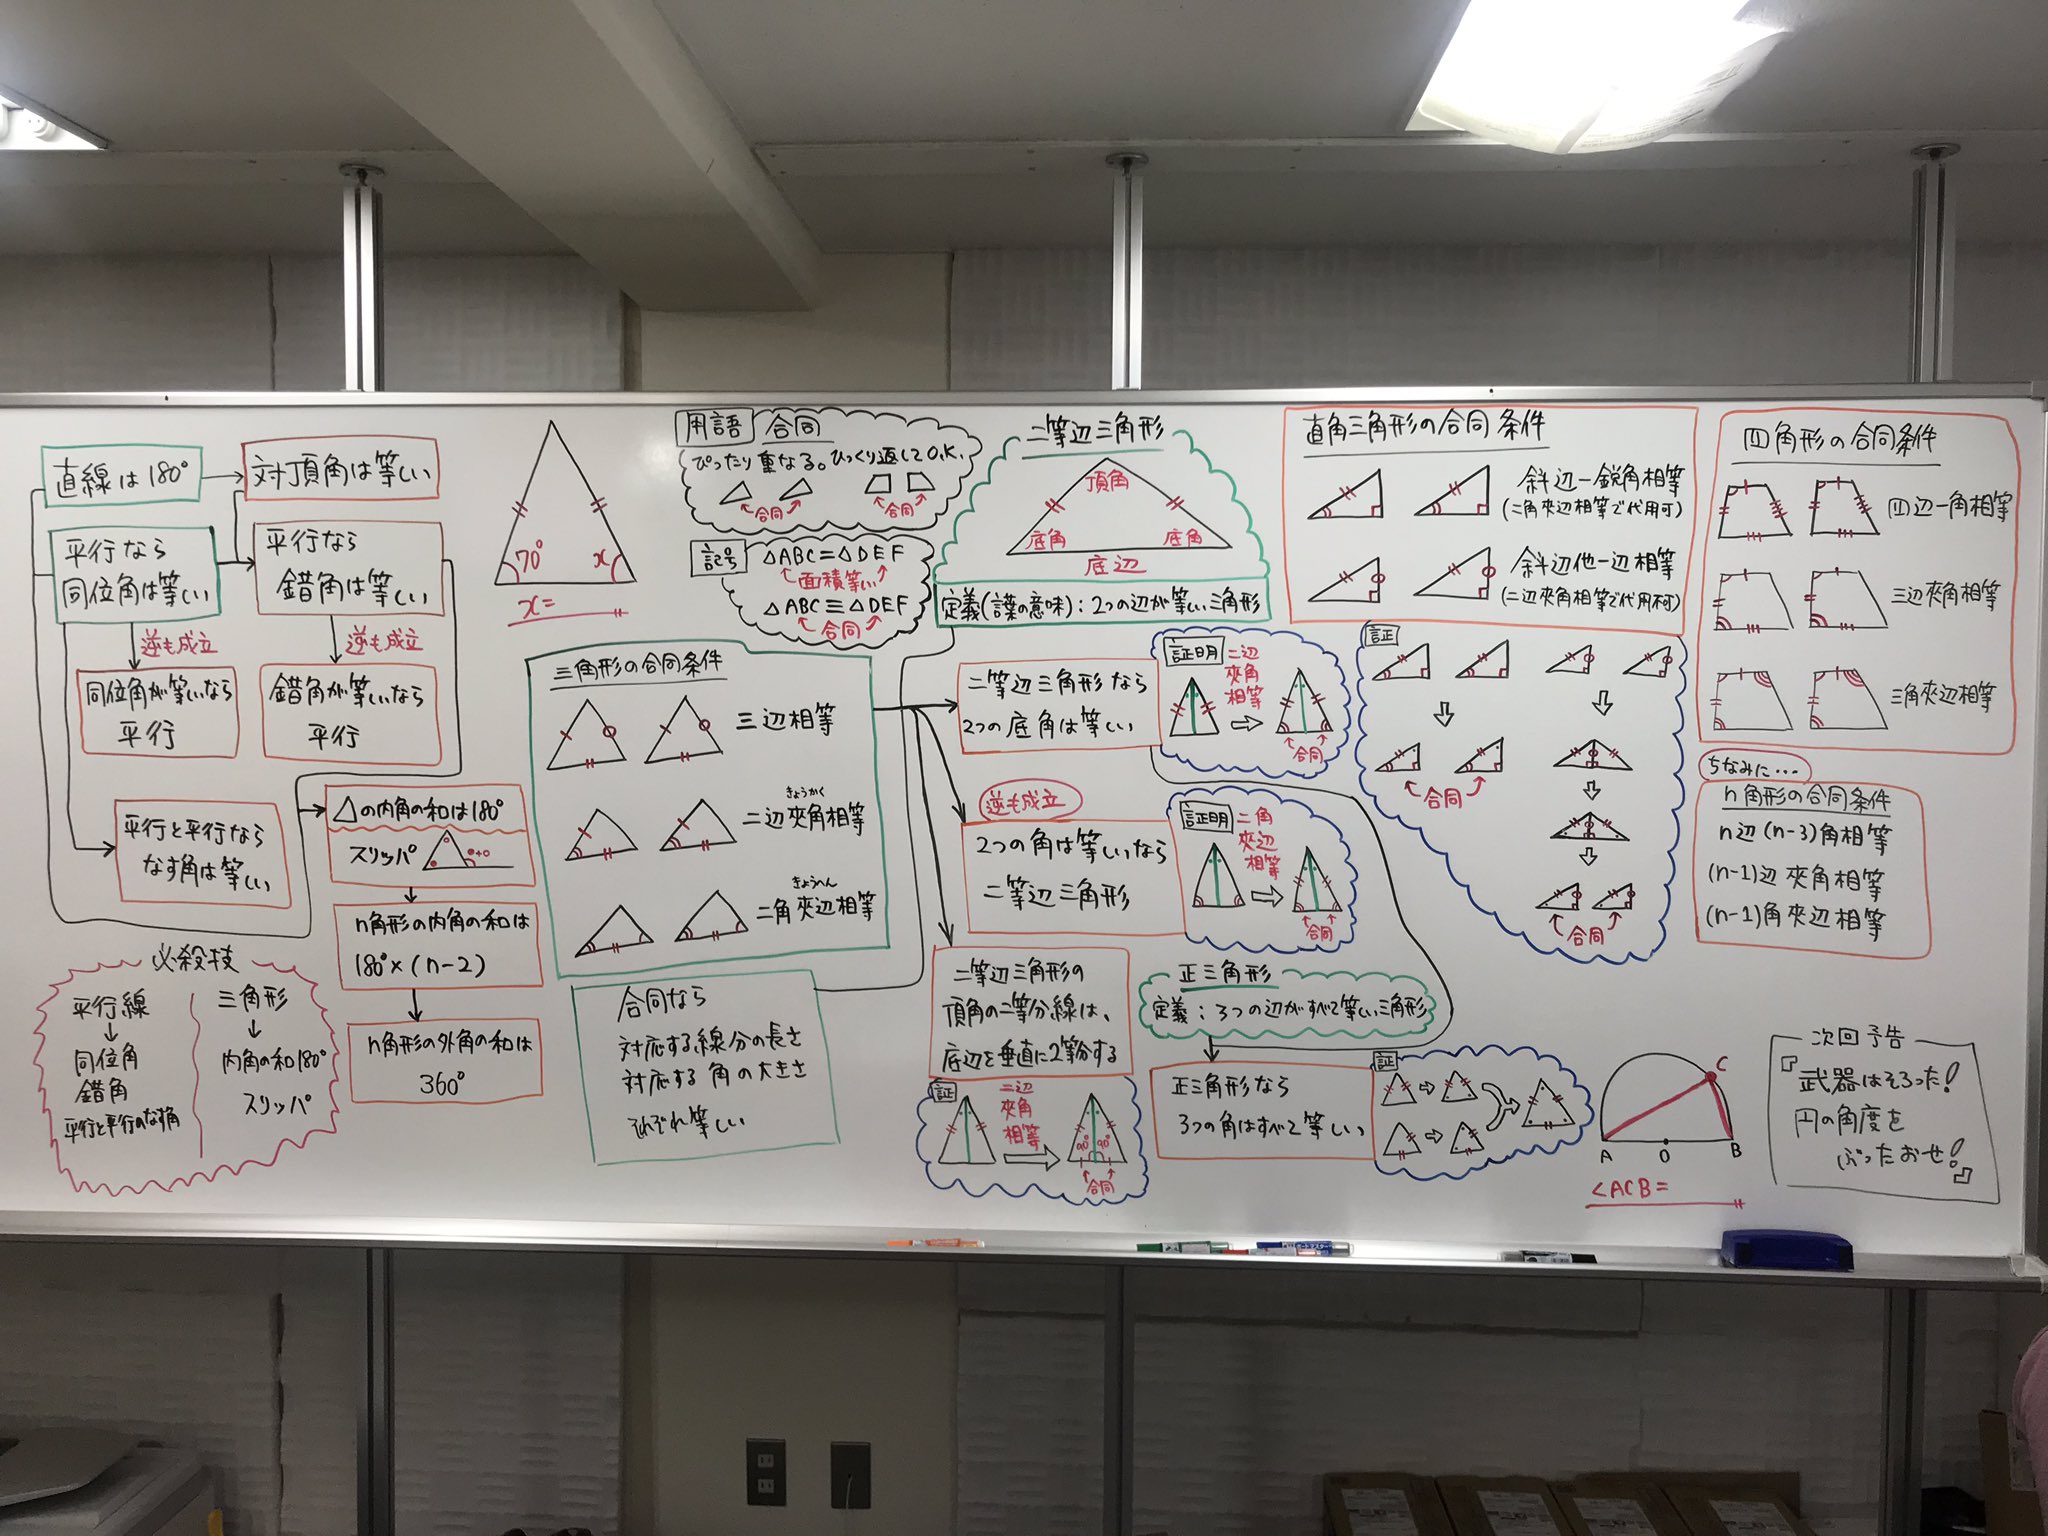 直線は180°
対頂角は等しい
平行なら
同位角は等しい
平行なら
錯角は等しい
逆も成立
逆も成立
同位角が等しいなら
平行
錯角が等しいなら
平行
平行と平行なら
なす角は等しい
△の内角の和は180°
スリッパ
n角形の内角の和は
180°×(n-2)
n角形の外角の和は
360°
必殺技
平行線
同位角
錯角
平行と平行のなす角
三角形
内角の和180°
スリッパ
70°
x
x=
用語
合同
ぴったり重なる。ひっくり返してO.K.
合同
合同
記号
△ABC=△DEF
面積等しい
△ABC≡△DEF
合同
三角形の合同条件
三辺相等
きょうかく
二辺夾角相等
きょうへん
二角夾辺相等
合同なら
対応する線分の長さ
対応する角の大きさ
それぞれ等しい
二等辺三角形
頂角
底角
底角
底辺
定義(言葉の意味):2つの辺が等しい三角形
二等辺三角形なら
2つの底角は等しい
証明
二辺
夾角
相等
合同
逆も成立
2つの角は等しいなら
二等辺三角形
証明
二角
夾辺
相等
合同
二等辺三角形の
頂角の二等分線は、
底辺を垂直に2等分する
証
二辺
夾角
相等
90°
90°
合同
正三角形
定義:3つの辺がすべて等しい三角形
正三角形なら
3つの角はすべて等しい
証
直角三角形の合同条件
斜辺一鋭角相等
(二角夾辺相等で代用可)
斜辺他一辺相等
(二辺夾角相等で代用不可)
証
合同
合同
四角形の合同条件
四辺一角相等
三辺夾角相等
三角夾辺相等
ちなみに…
n角形の合同条件
n辺(n-3)角相等
(n-1)辺夾角相等
(n-1)角夾辺相等
C
A
O
B
∠ACB=
次回予告
『武器はそろった!
円の角度を
ぶったおせ!』